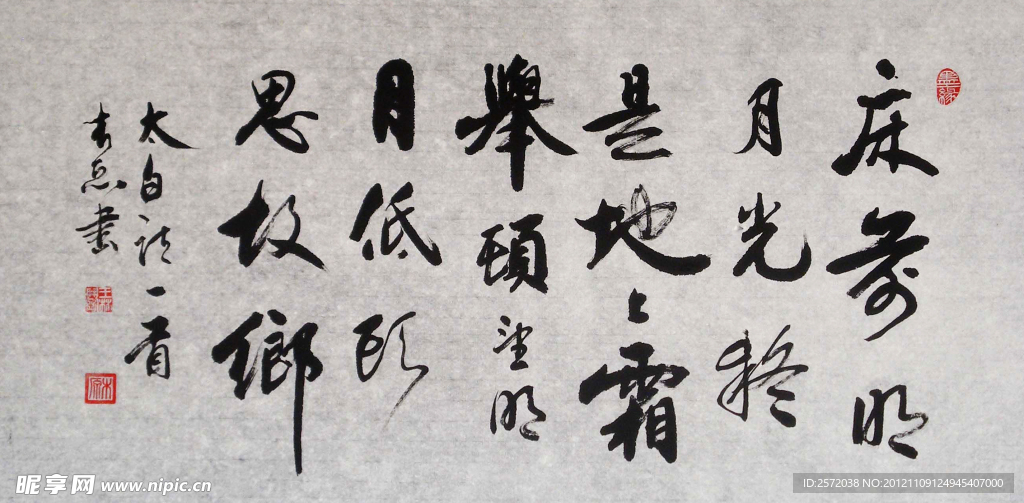 墨缘
床前明
月光疑
是地上霜
舉頭望明
月低頭
思故鄉
太白詩一首
書
昵享网 www.nipic.cn
ID:2572038 NO:20121109124945407000